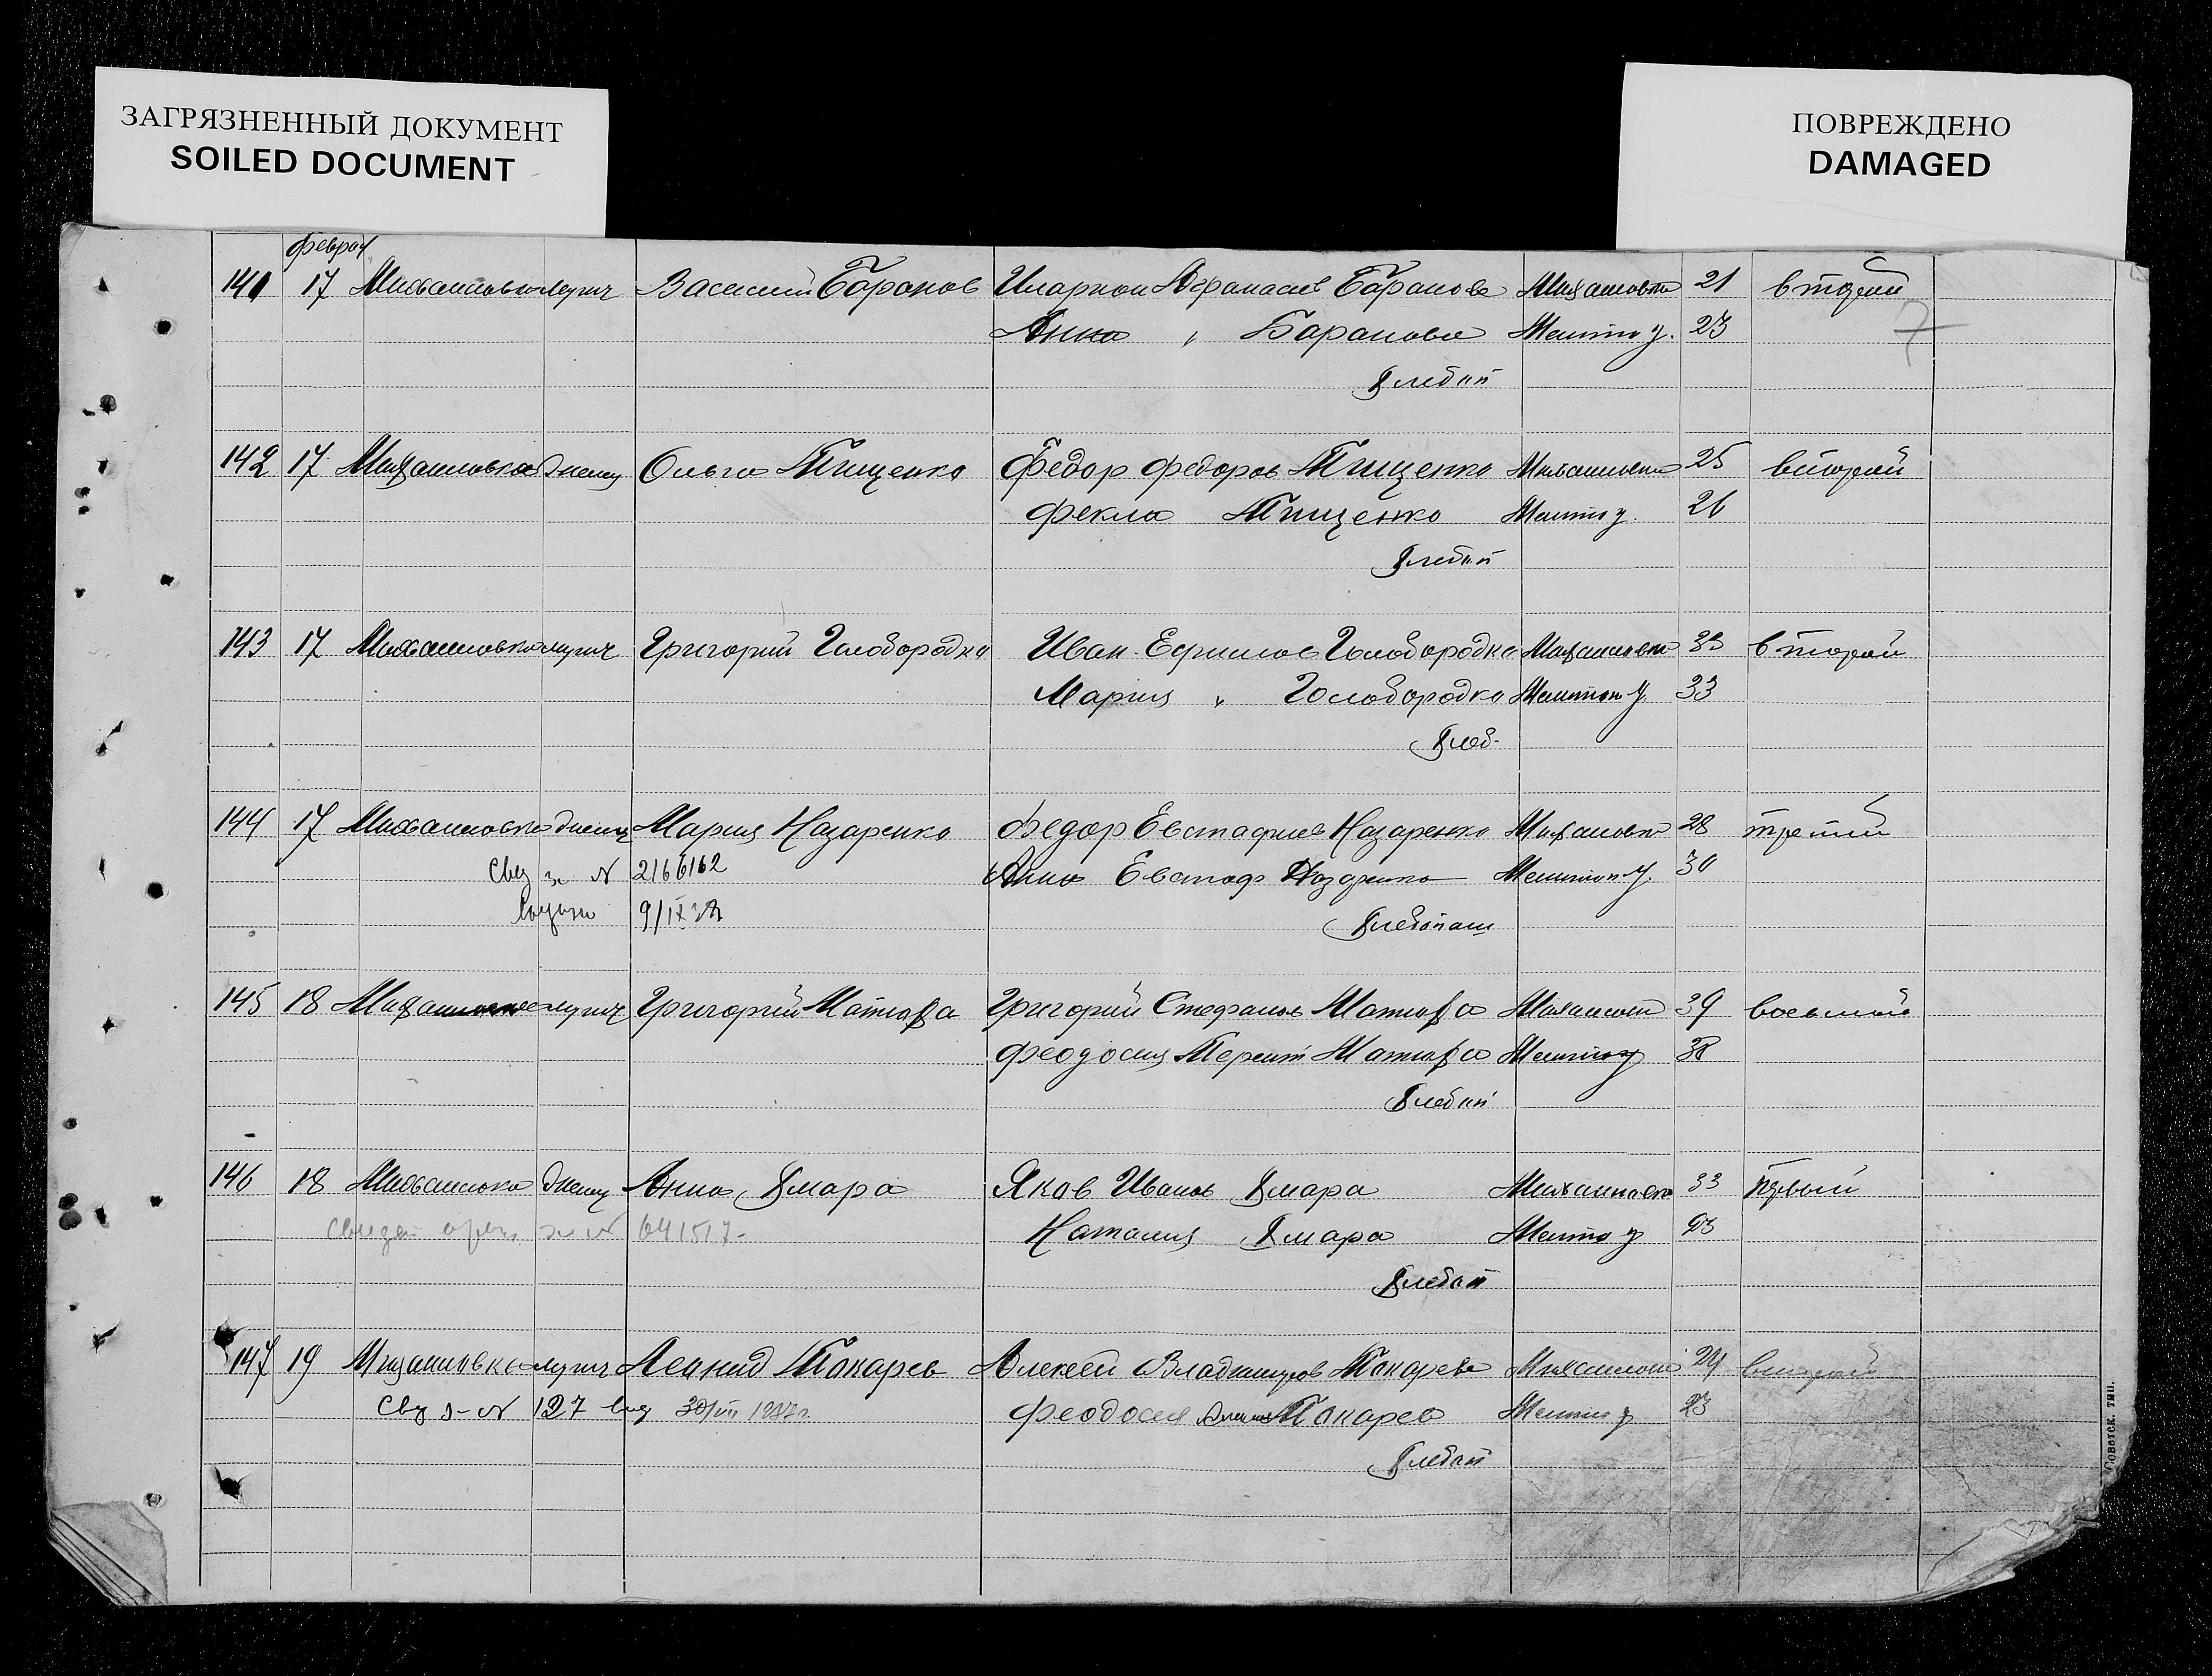 ЗАГРЯЗНЕННЫЙ ДОКУМЕНТ
SOILED DOCUMENT
ПОВРЕЖДЕНО
DAMAGED
феврал
141 17 Михайловка мужч Василий Баранов Иларион Афанасьев Баранов Михайловка 21 второй
Анна " Баранова Мелитоп у. 23
7
Хлебоп
142 17 Михайловка женщ Ольга Тищенко Федор Федоров Тищенко Михайловка 25 второй
Фекла Тищенко Мелитоп у. 26
Хлебоп
143 17 Михайловка мужч Григорий Голобородко Иван Ефимов Голобородко Михайловка 33 второй
Мария " Голобородко Мелитоп у. 33
Хлеб.
144 17 Михайловка женщ Мария Назаренко Федор Евстафиев Назаренко Михайловка 28 третий
Свид за № 2166162 Анна Евстаф Назаренко Мелитоп у. 30
9/IX
Хлебопаш
145 18 Михайловка мужч Григорий Матюха Григорий Стефанов Матюха Михайловк 39 восьмой
Феодосия Матюха Мелитоп у 38
Хлебоп
146 18 Михайловка женщ Анна Хмара Яков Иванов Хмара Михайловка 33 первый
за № 641517. Наталия Хмара Мелитоп у 23
Хлебоп
147 19 Михайловка мужч Леонид Токарев Алексей Владимиров Токарев Михайловк 24 второй
Свид за № 127 выд 30/VII Феодосия Токарев Мелитоп у 23
Хлебоп
Советск. тип.